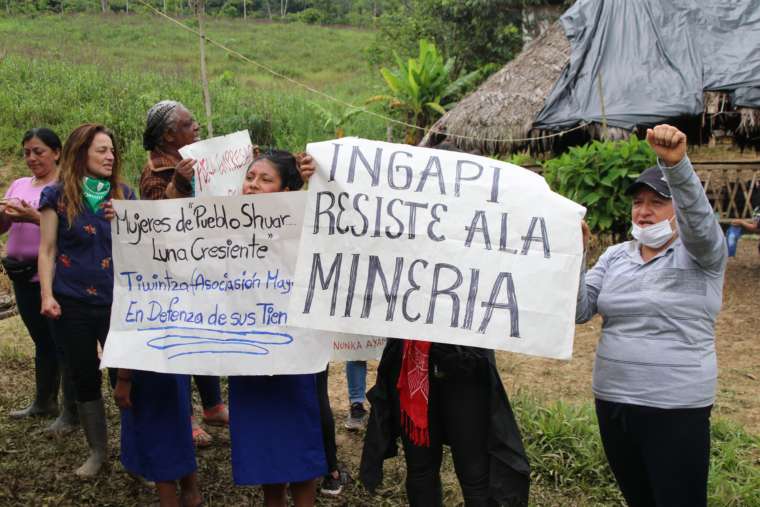 Mujeres de "Pueblo Shuar...
Luna Cresiente"
Tiwintza Asociasión May
En Defenza de sus Tien
INGAPI
RESISTE A LA
MINERIA
NUNKA AYAM